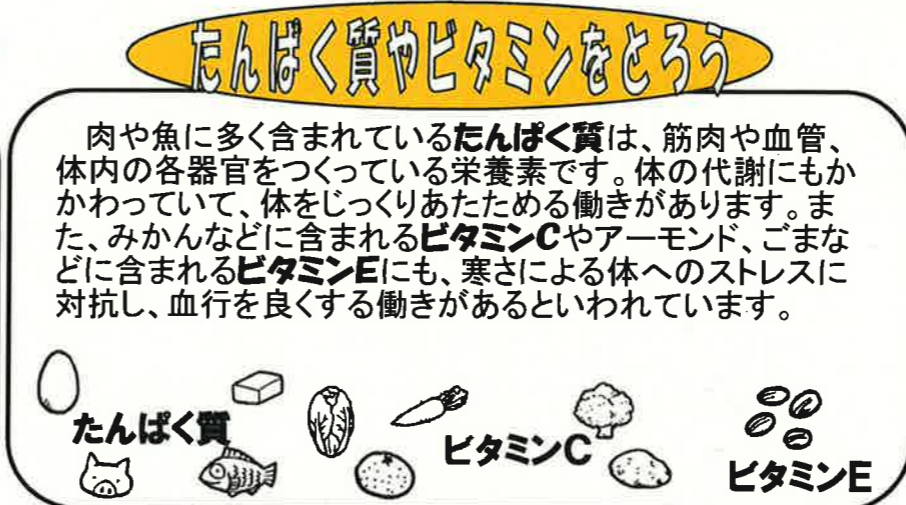 たんぱく質やビタミンをとろう
肉や魚に多く含まれているたんぱく質は、筋肉や血管、
体内の各器官をつくっている栄養素です。体の代謝にもか
かわっていて、体をじっくりあたためる働きがあります。ま
た、みかんなどに含まれるビタミンCやアーモンド、ごまな
どに含まれるビタミンEにも、寒さによる体へのストレスに
対抗し、血行を良くする働きがあるといわれています。
たんぱく質
ビタミンC
ビタミンE